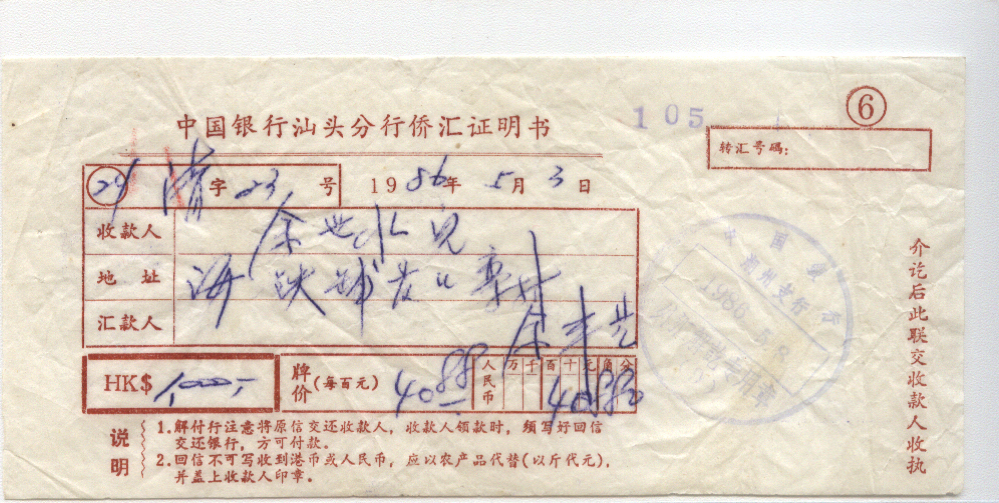 105
6
中国银行汕头分行侨汇证明书
转汇号码：
24 字 23 号 1986年 5月 3日
收款人 余世
地址 海
汇款人 余
HK$ 1,000-
牌价(每百元) 40.88 人民币 万千百十元角分 408.80
说明
1.解付行注意将原信交还收款人，收款人领款时，须写好回信
交还银行，方可付款。
2.回信不可写收到港币或人民币，应以农产品代替(以斤代元)，
并盖上收款人印章。
介讫后此联交收款人收执
中国银行
潮州支行
1986.5.